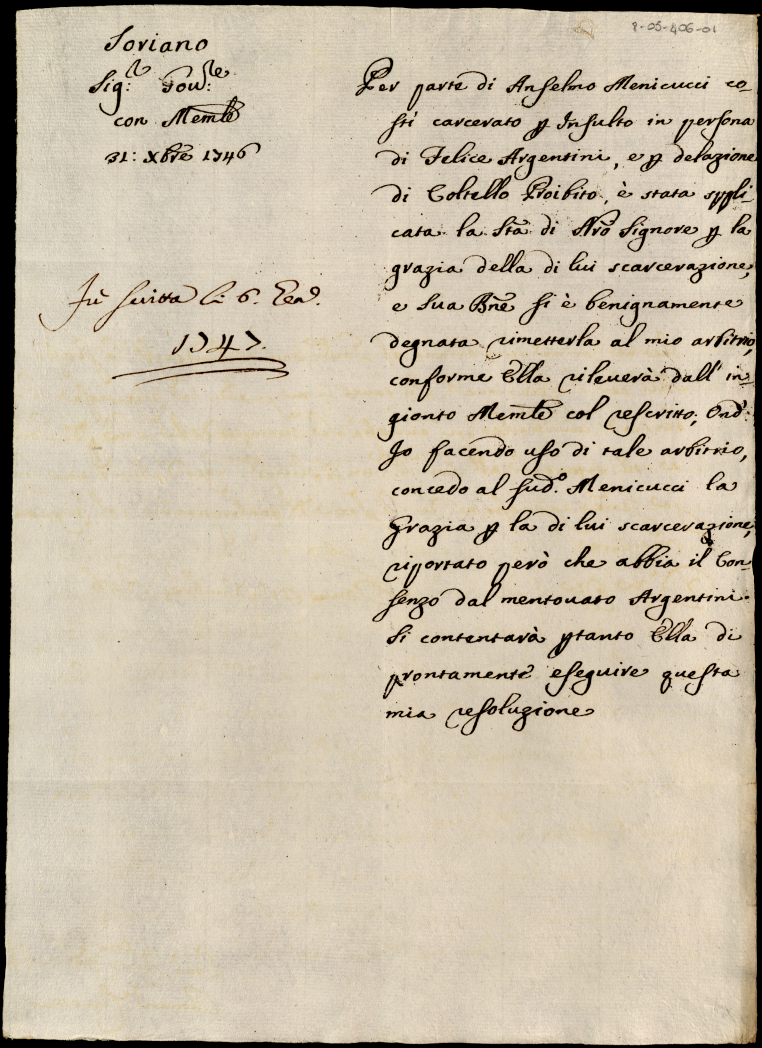 8-05-406-01
Soriano
Sig:re Gov:re
con Memle
31: Xbre 1746
Fù scritta li 6. Gen.o
1747.
Per parte di Anselmo Menicucci co-
stì carcerato p Insulto in persona
di Felice Argentini, e p delazione
di Coltello Proibito, è stata suppli-
cata la Stà di Nrò Signore p la
grazia della di lui scarcerazione,
e Sua Bne si è benignamente
degnata rimetterla al mio arbitrio,
conforme Ella rileverà dall' in-
gionto Memle col rescritto; Ond':
Io facendo uso di tale arbitrio,
concedo al sud.o Menicucci la
Grazia p la di lui scarcerazione,
riportato però che abbia il Con-
senzo dal mentovato Argentini.
Si contentarà ptanto Ella di
prontamente eseguire questa
mia resoluzione